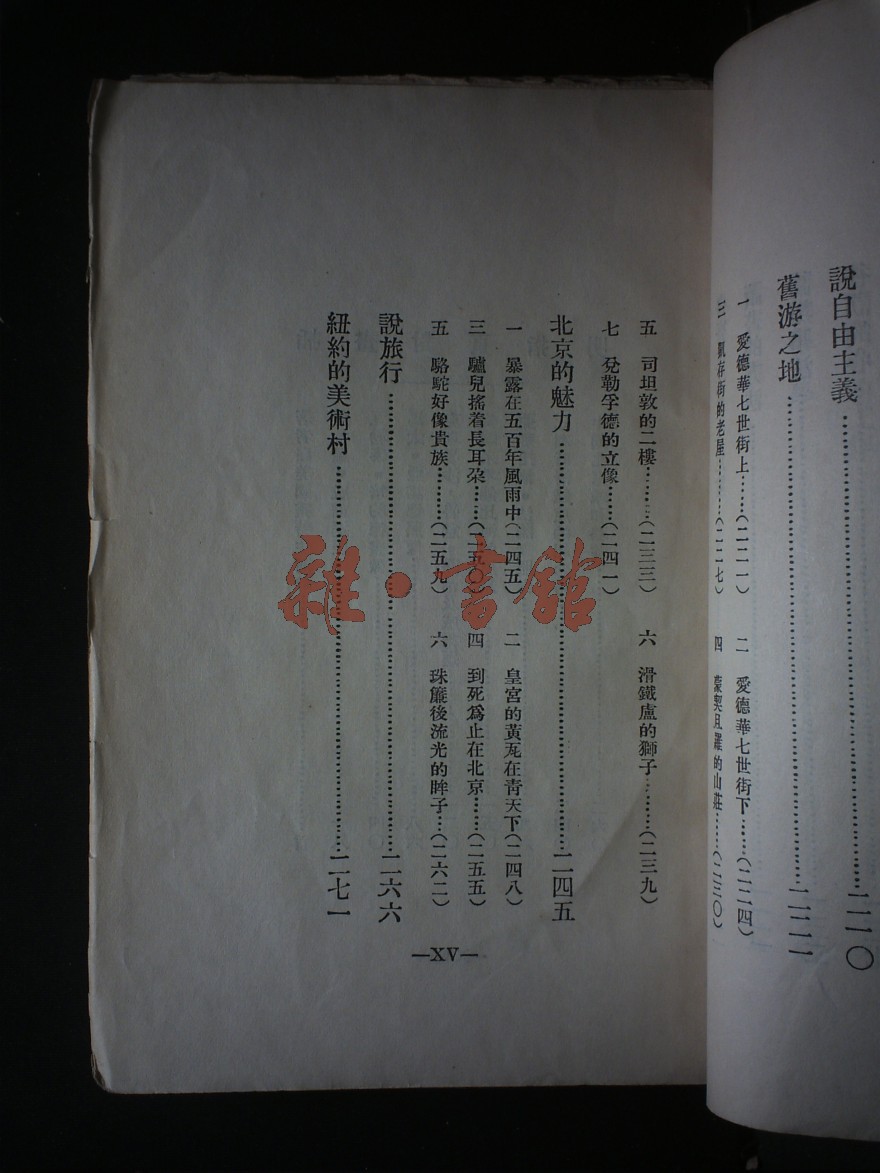 說自由主義……二一〇
舊游之地……二二一
一 愛德華七世街上……(二二一) 二 愛德華七世街下……(二二四)
三 凱存街的老屋……(二二七) 四 蒙契且羅的山莊……(二三〇)
五 司坦敦的二樓……(二三三) 六 滑鐵盧的獅子……(二三九)
七 兌勒孚德的立像……(二四一)
北京的魅力……二四五
一 暴露在五百年風雨中(二四五) 二 皇宮的黃瓦在靑天下(二四八)
三 驢兒搖着長耳朶……(二五〇) 四 到死爲止在北京……(二五五)
五 駱駝好像貴族……(二五九) 六 珠簾後流光的眸子…(二六二)
說旅行……二六六
紐約的美術村……二七一
—XV—
雜·書館